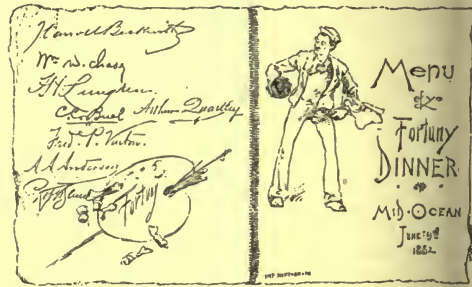 J Carroll Beckwith
Wm. W. Chase
F. H. Lungren.
C. C. Buel
Arthur Quartley
Fredk. P. Vinton.
A. A. Anderson
S. S. Fortuny
Menu
&c
Fortuny
DINNER
MID-OCEAN
JUNE 19th
1882